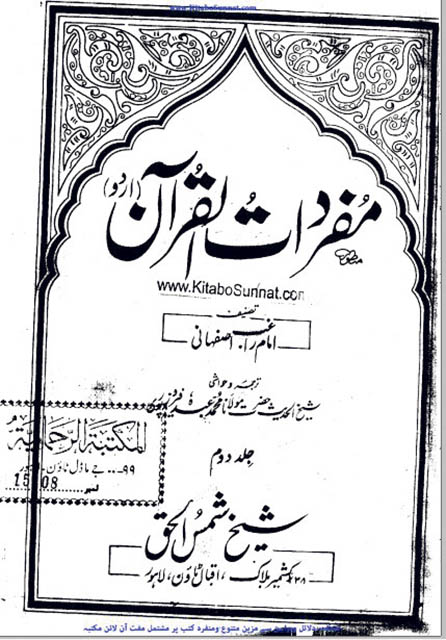 www.KitaboSunnat.com
مُفردات القرآن (اردو)
www.KitaboSunnat.com
تصنیف
امام راغب اصفہانی
ترجمہ و حواشی
شیخ الحدیث حضرت مولانا محمد عبدہ فیروزپوری
المكتبة الرحمانية
۹۹- جے ماڈل ٹاؤن۔ لاہور
نمبر 15108
جلد دوم
شیخ شمس الحق
کشمیر بلاک، اقبال ٹاؤن، لاہور
دلائل سے مزین متنوع ومنفرد کتب پر مشتمل مفت آن لائن مکتبہ